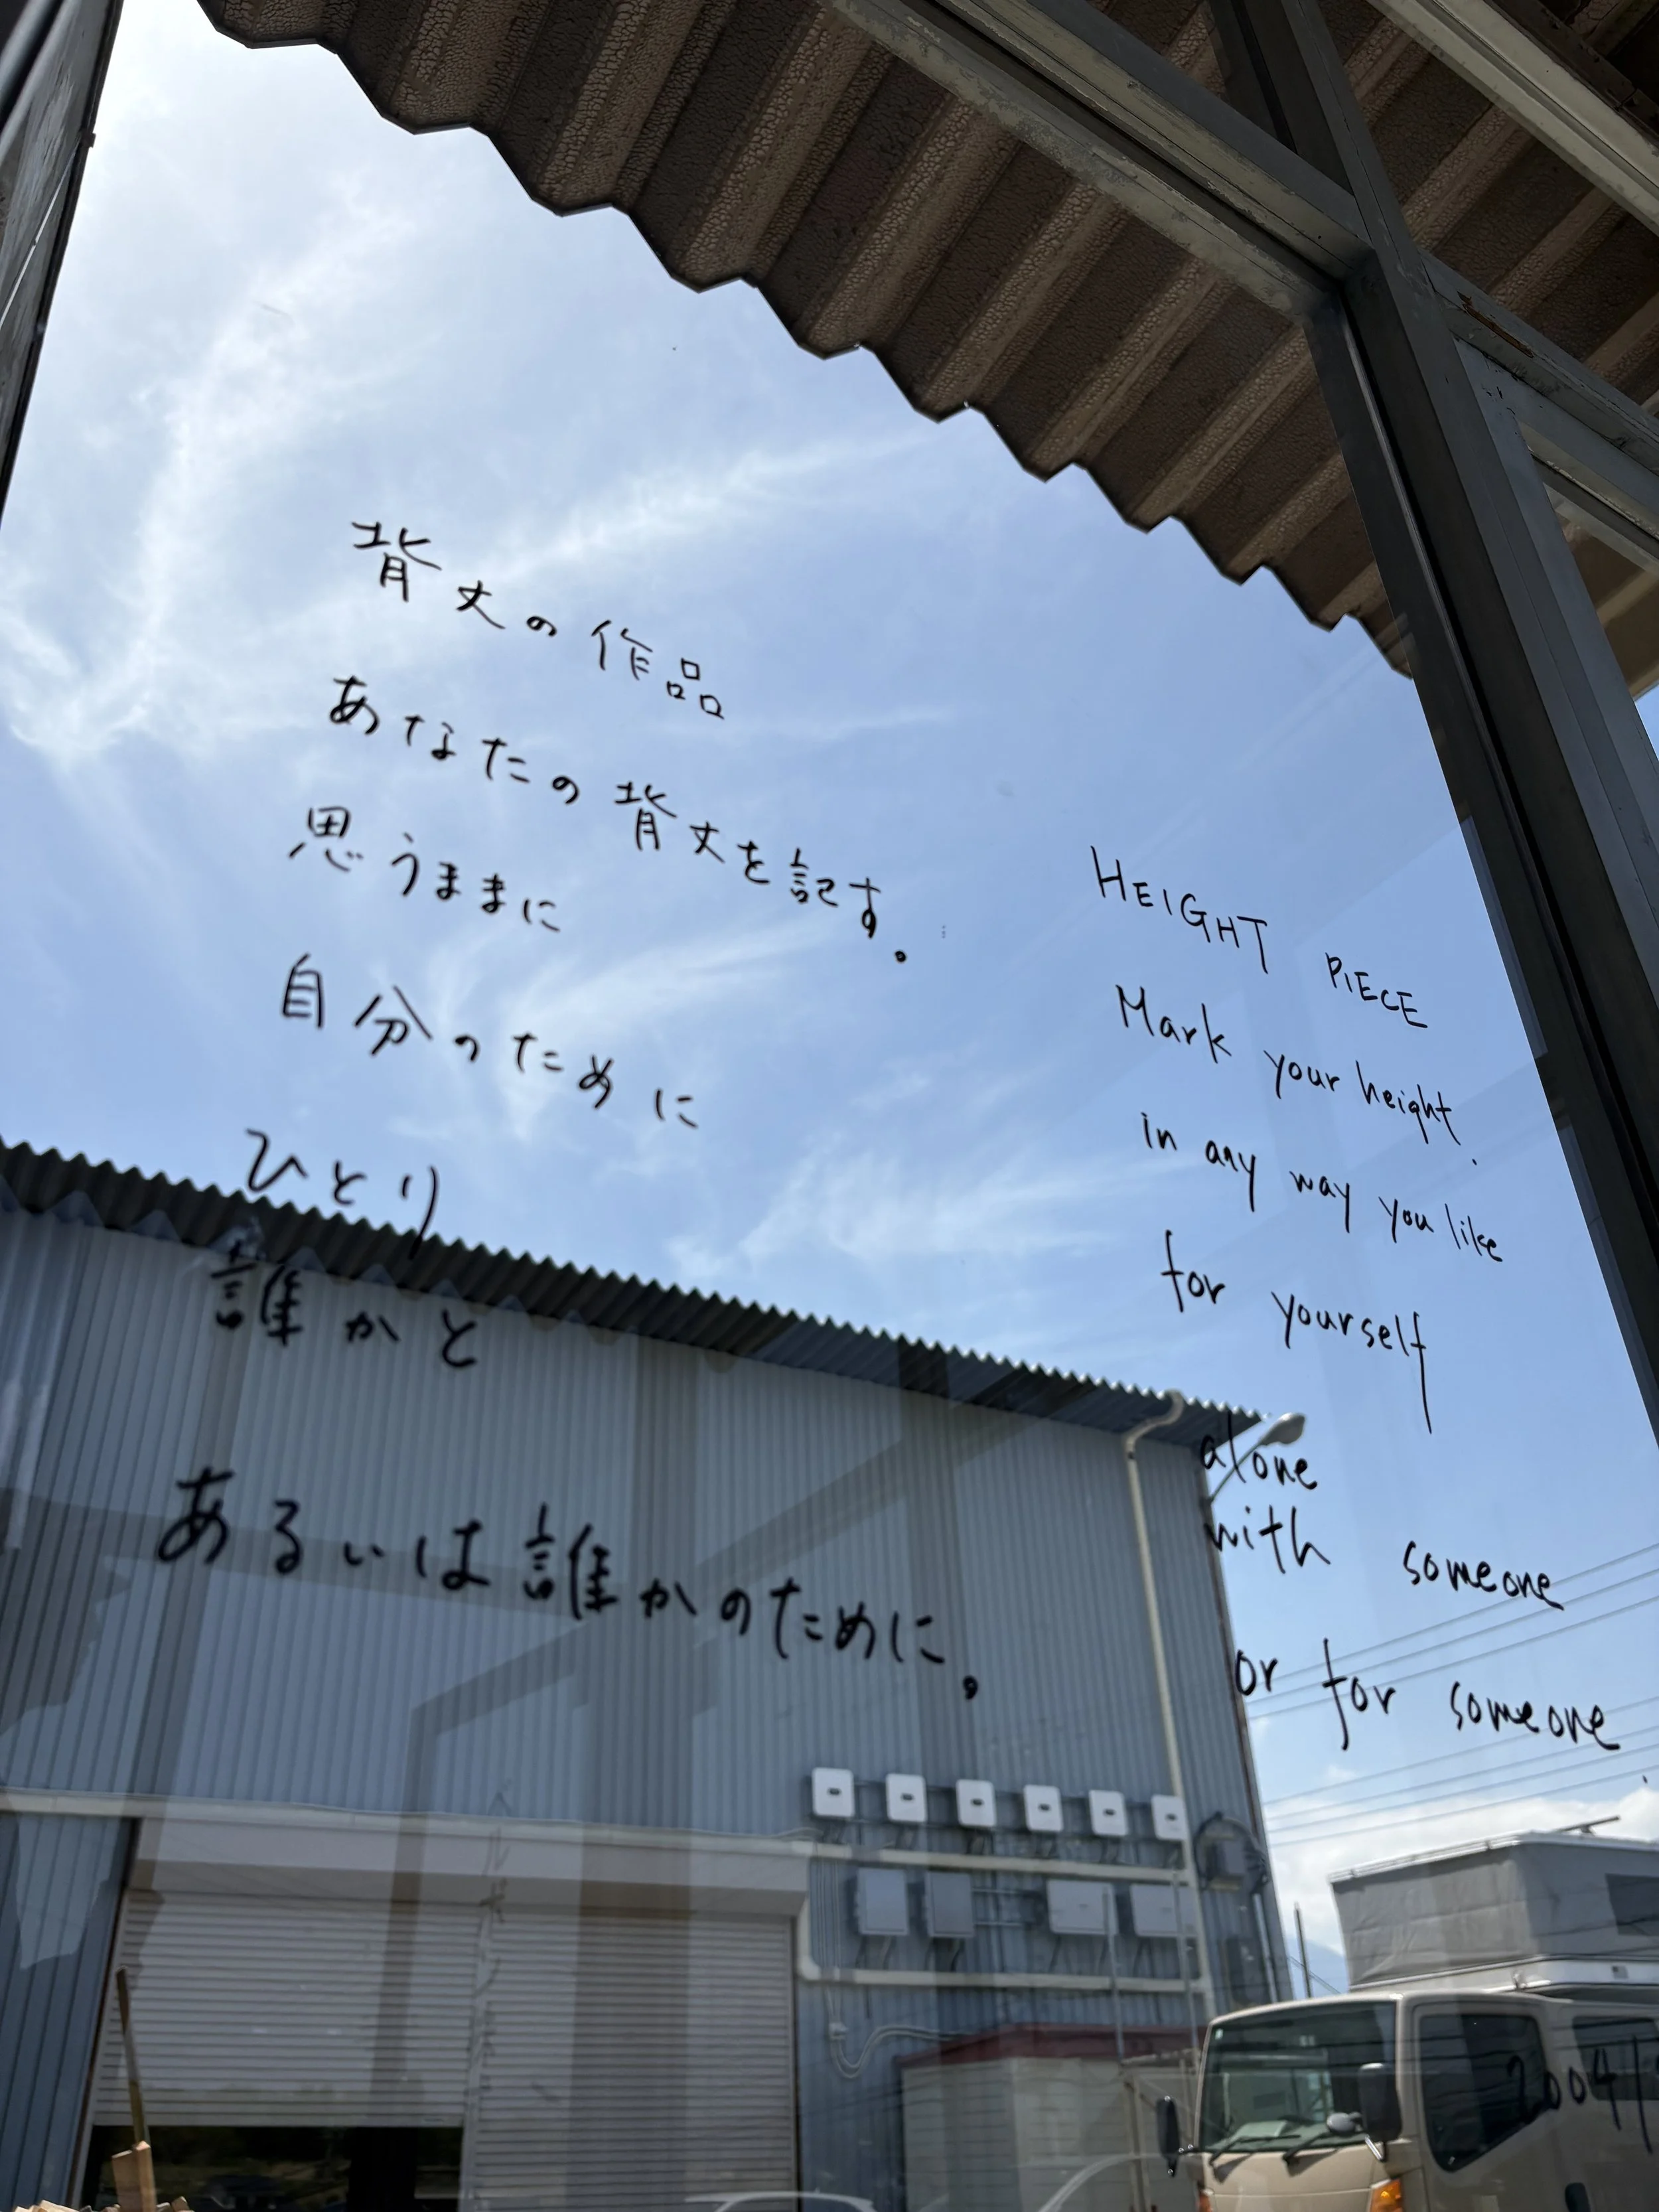 背丈の作品
あなたの背丈を記す。
思うままに
自分のために
ひとり
誰かと
あるいは誰かのために。
HEIGHT PIECE
Mark your height.
in any way you like
for yourself
alone
with someone
or for someone